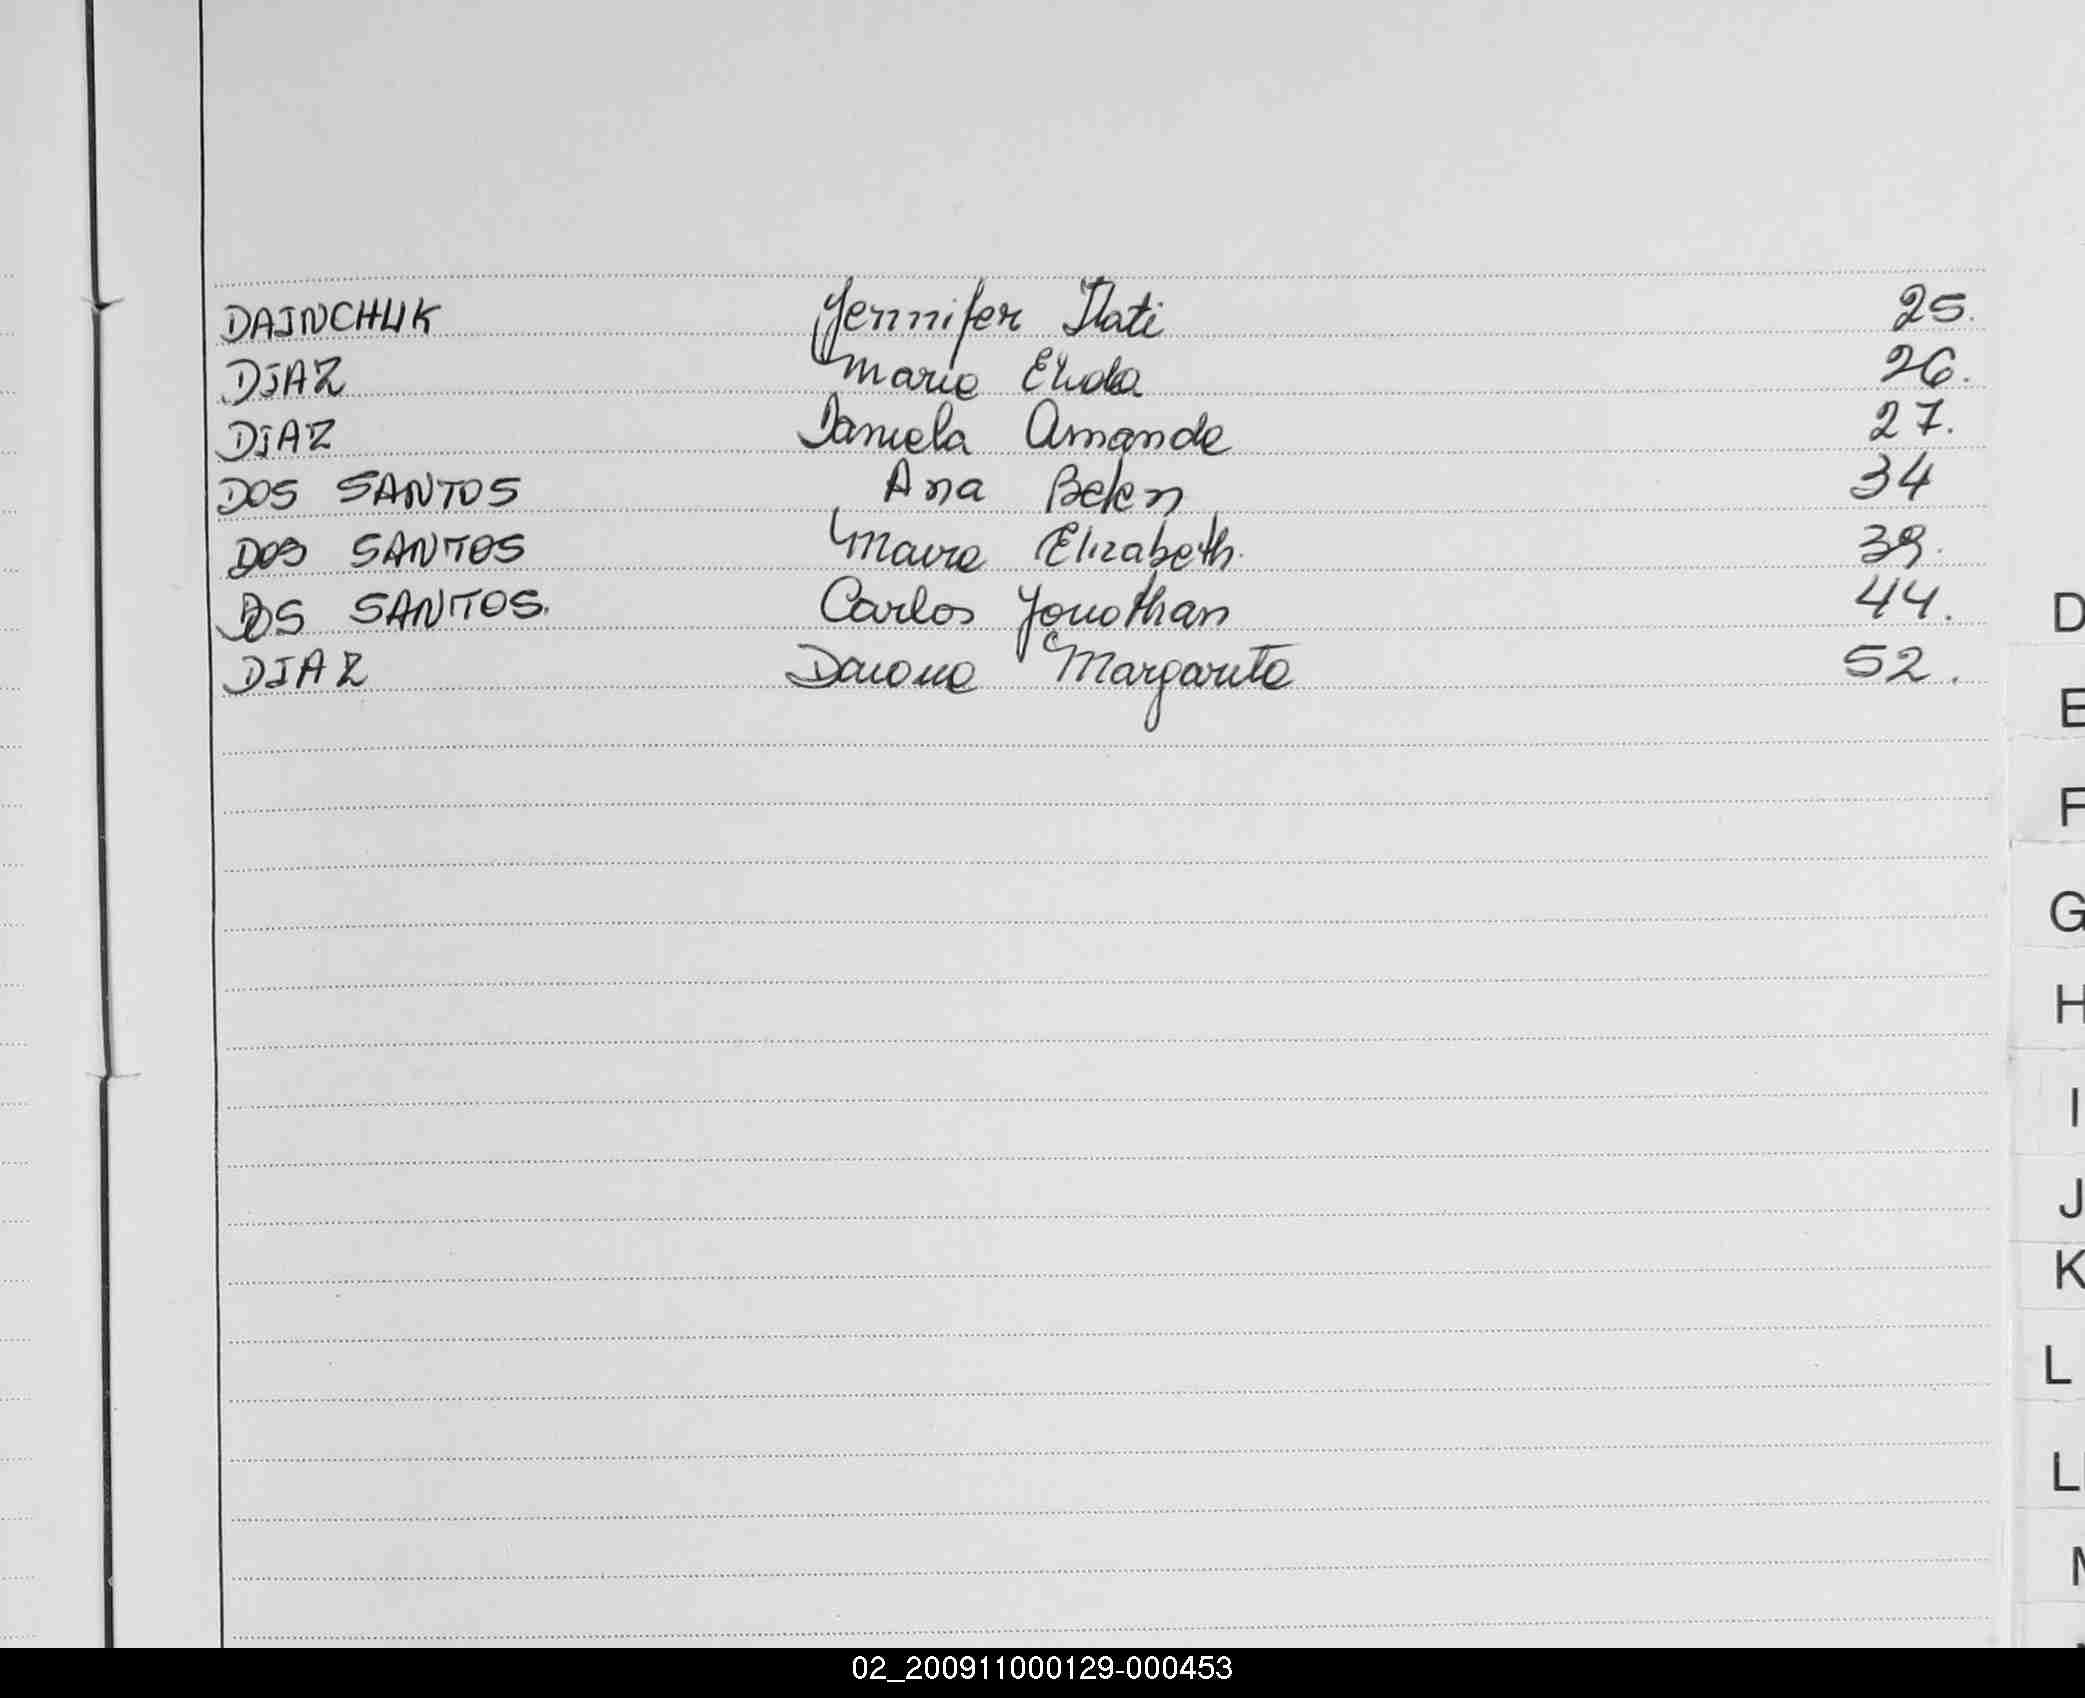 DAINCHUK Jennifer Itati 25.
DIAZ Maria Elida 26.
DIAZ Daniela Amanda 27.
DOS SANTOS Ana Belen 34
DOS SANTOS Maira Elizabeth. 39.
DOS SANTOS. Carlos Jonathan 44.
DIAZ Daiana Margarita 52.
D
E
F
G
H
I
J
K
L
LL
M
02_200911000129-000453